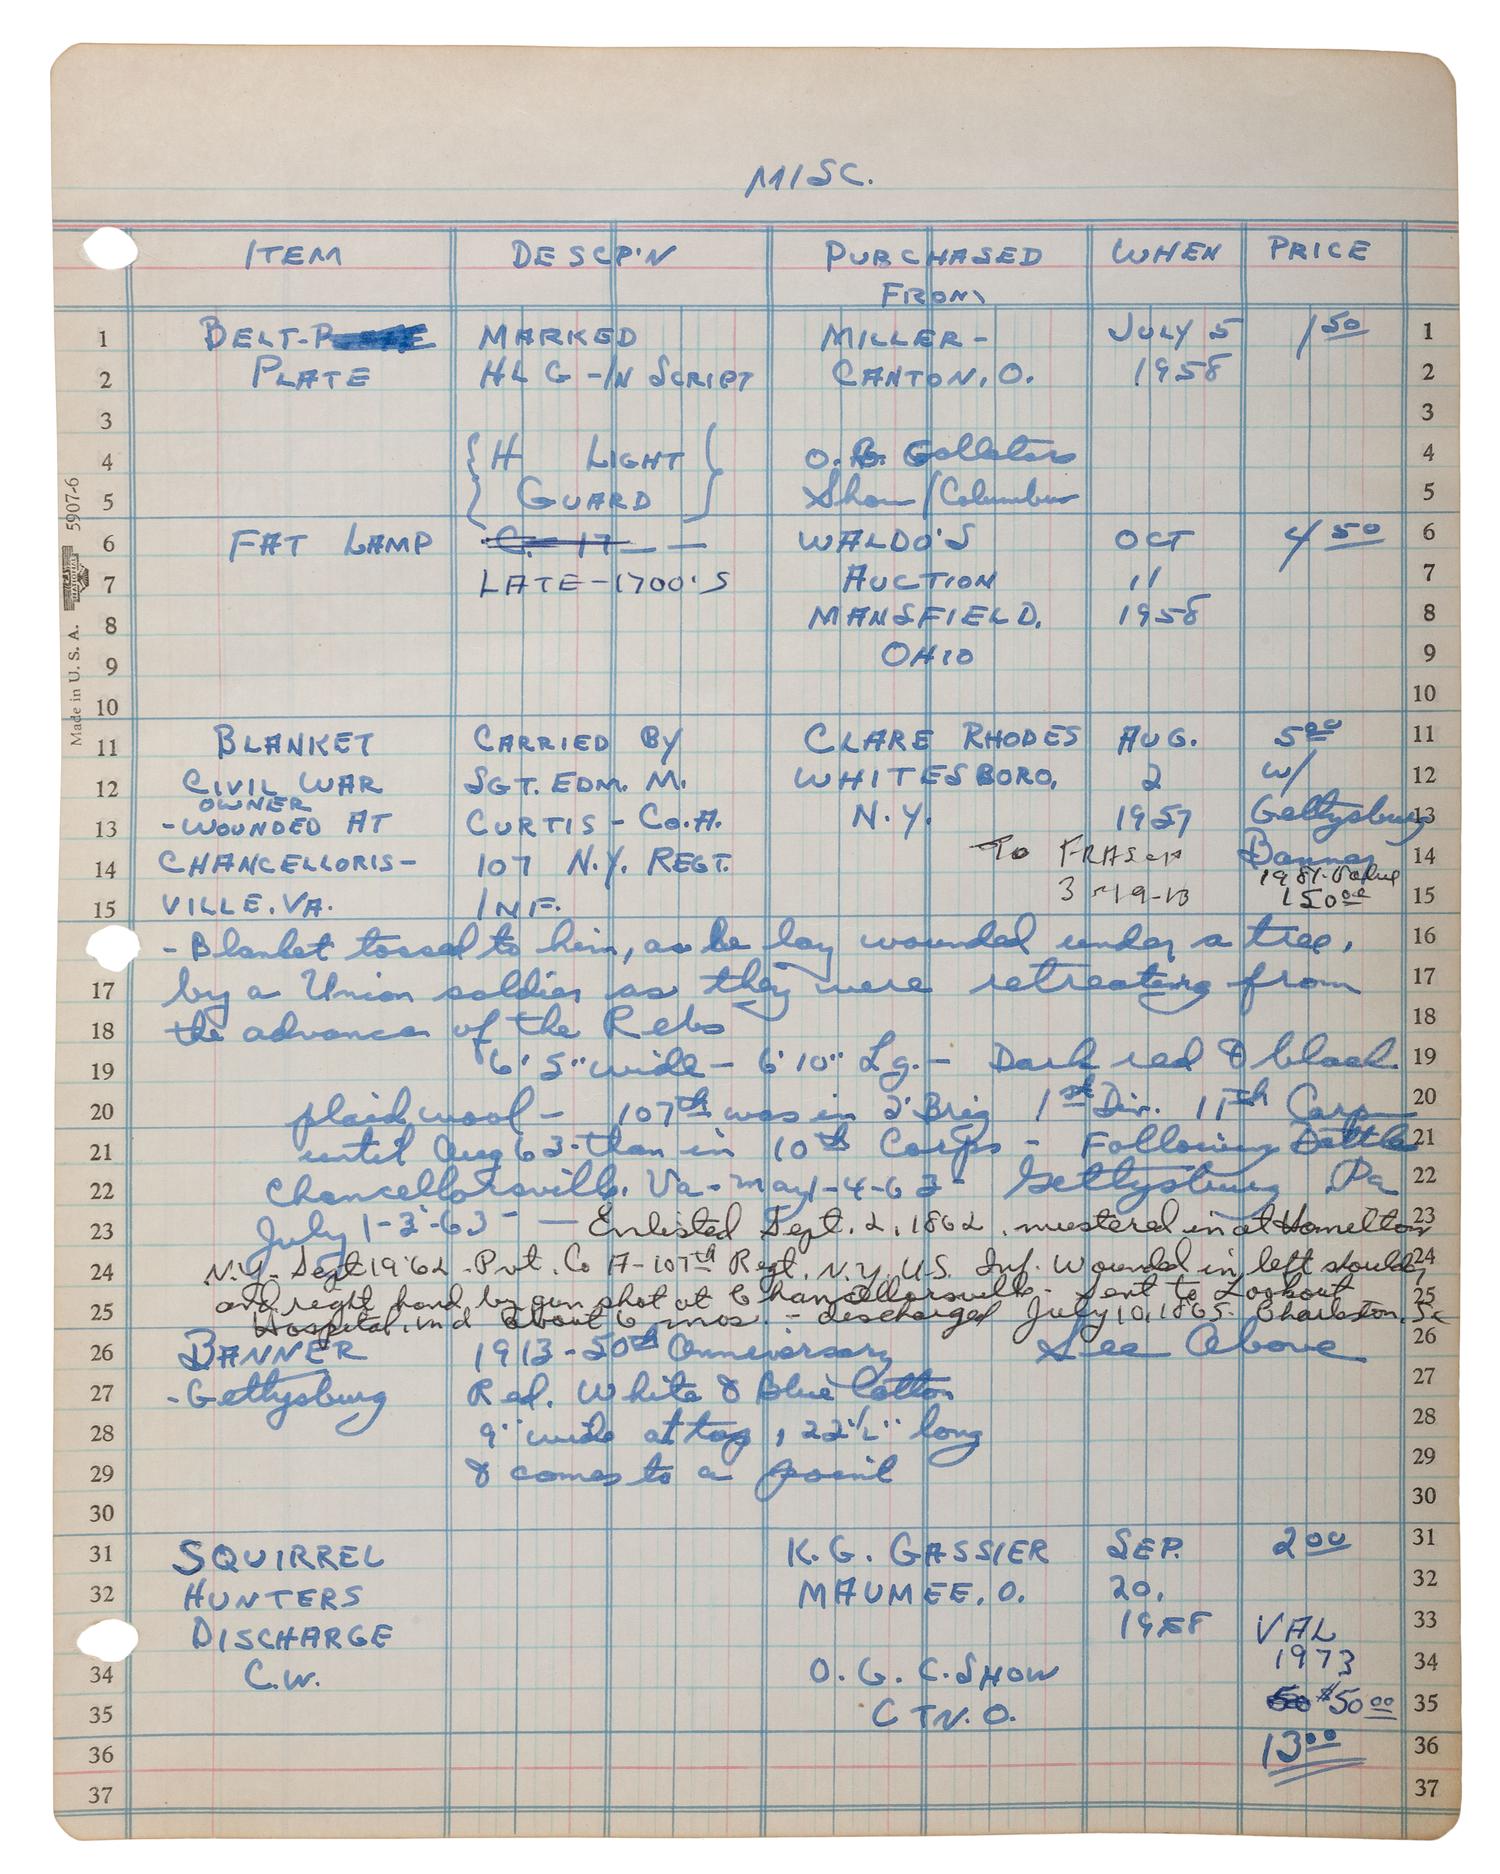 MISC.
ITEM DESCP'N PURCHASED WHEN PRICE
FROM
1 BELT-P MARKED MILLER- JULY 5 1 50 1
2 PLATE HLG-IN SCRIPT CANTON, O. 1958 2
3 3
4 { H LIGHT } O. G. Collectors 4
5 GUARD Show/Columbus 5
6 FAT LAMP C. 17 — — WALDO'S OCT 4 50 6
7 LATE-1700'S AUCTION 11 7
8 MANSFIELD, 1958 8
9 OHIO 9
10 10
11 BLANKET CARRIED BY CLARE RHODES AUG. 5 00 11
12 CIVIL WAR SGT. EDM. M. WHITESBORO, 2 w/ 12
OWNER
13 -WOUNDED AT CURTIS-CO.A. N.Y. 1957 Gettysburg 13
14 CHANCELLORIS- 107 N.Y. REGT. TO FRASCA Banner 14
1981-Value
15 VILLE, VA. INF. 3-19-13 150 00 15
-Blanket tossed to him, as he lay wounded under a tree, 16
17 by a Union soldier as they were retreating from 17
18 the advance of the Rebs 18
19 6'5" wide - 6'10" Lg. - Dark red & black 19
20 plaid wool - 107th was in 2' Brig 1st Div. 11th Corp 20
21 until Aug 63-than in 10th Corps - Following Battle 21
22 Chancellorsville, Va-May 1-4-63- Gettysburg Pa 22
23 July 1-3-63 - — Enlisted Sept. 2, 1862, mustered in at Hamelton 23
24 N.Y. Sept 19'62 - Pvt. Co A-107th Regt. N.Y. U.S. Inf. Wounded in left shoulder 24
and right hand by gun shot at Chancellorsville - sent to Lookout 25
25 Hospital, ind about 6 mos. - discharged July 10, 1865. Charleston, Sc
26 BANNER 1913-50th Anniversary See Above 26
27 -Gettysburg Red, White & Blue Cotton 27
28 9" wide at top, 22 1/2" long 28
29 & comes to a point 29
30 30
31 SQUIRREL K.G. GASSIER SEP. 2 00 31
32 HUNTERS MAUMEE, O. 20, 32
DISCHARGE 1958 VAL 33
34 C.W. O.G.C. SHOW 1973 34
35 CTN. O. 50 $50 00 35
36 13 00 36
37 37
Made in U. S. A. NATIONAL 5907-6